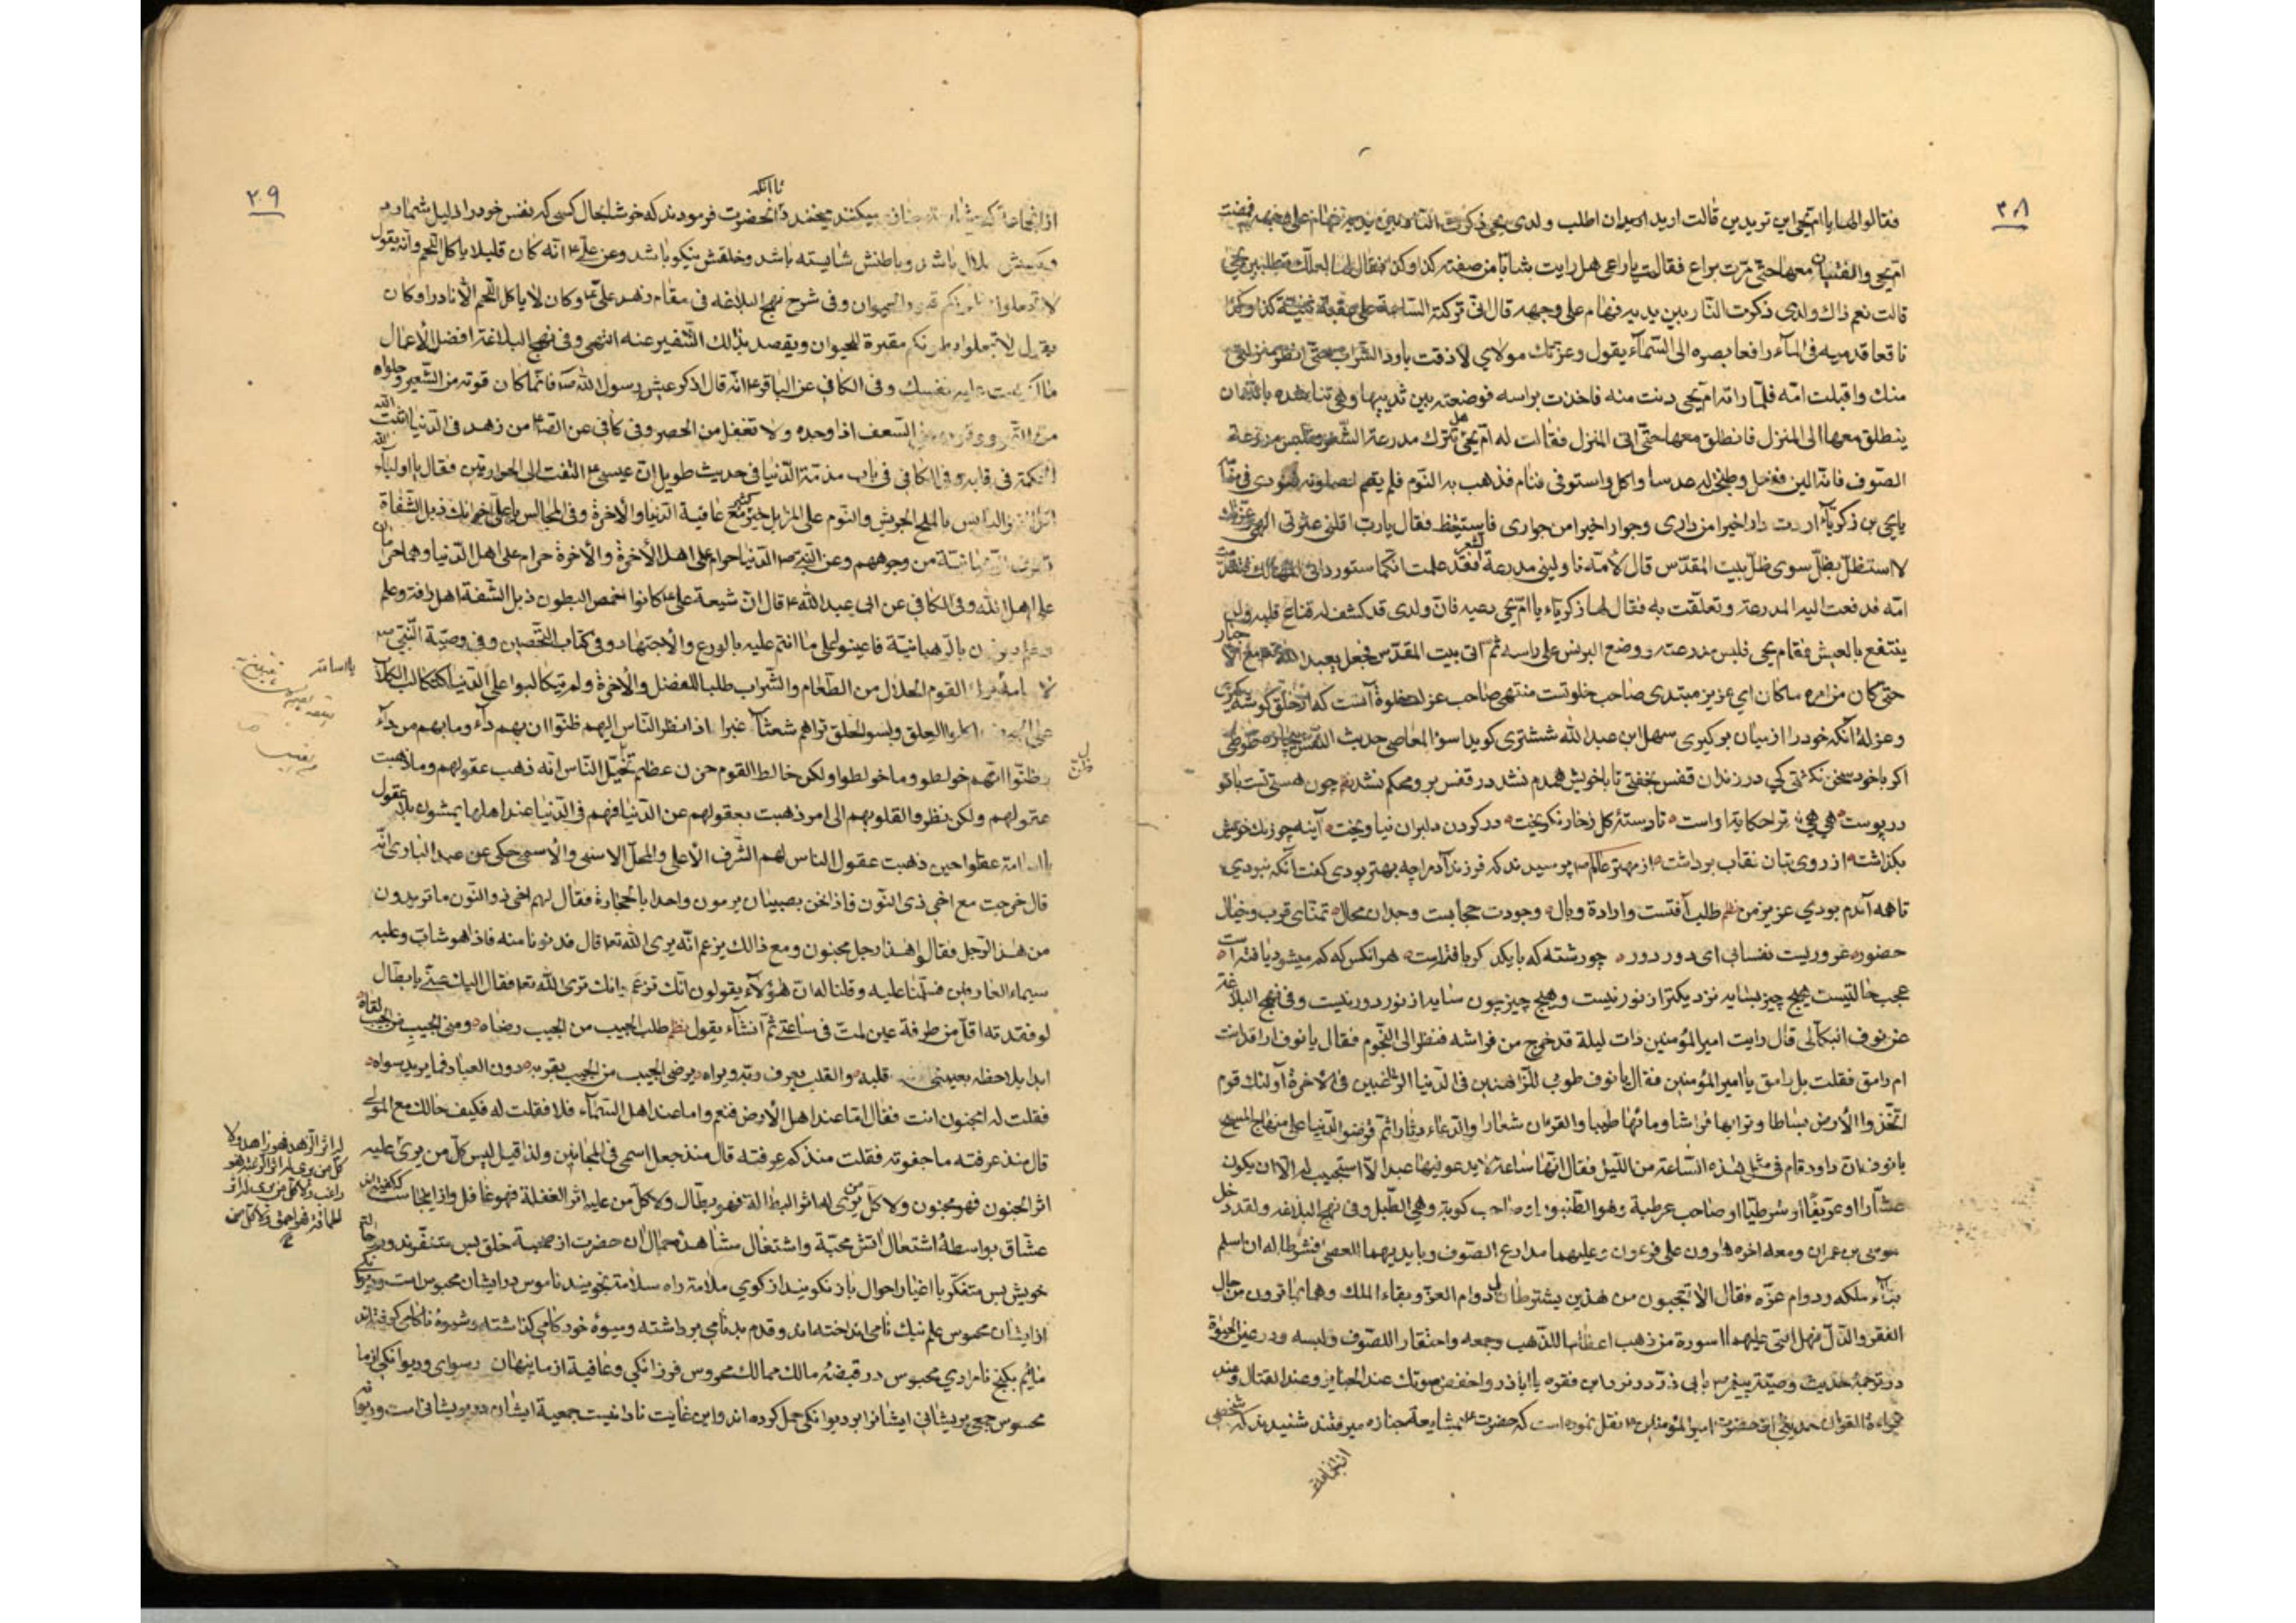 ۳۸
فقالوا لها یا ام یحیی این تریدین قالت ارید ان اطلب ولدی یحیی ذکرت النار بین یدیه فهام علی وجهه فمضت
ام یحیی والفتیان معها حتی مرت براع فقالت یا راعی هل رایت شابا من صفته کذا وکذا فقال لها لعلک تطلبین یحیی
قالت نعم ذاک ولدی ذکرت النار بین یدیه فهام علی وجهه قال انی ترکته الساعة علی عقبة ثنیة کذا وکذا
ناقعا قدمیه فی المآء رافعا بصره الی السّمآء یقول وعزتک مولای لا ذقت بارد الشراب حتی انظر منزلتی
منک واقبلت امّه فلمّا راته ام یحیی دنت منه فاخذت براسه فوضعته بین ثدییها وهی تناشده بالله ان
ینطلق معها الی المنزل فانطلق معها حتّی اتی المنزل فقالت له ام یحیی هل لک ان تترک مدرعة الشعر وتلبس مدرعة
الصّوف فانّه الین ففعل وطبخ له عدسا واکل واستوفی فنام فذهب به النّوم فلم یقم لصلوته فنودی فی منامه
یا یحیی بن ذکریّا اردت دارا خیرا من داری وجوارا خیرا من جواری فاستیقظ فقال یا رب اقلنی عثرتی الهی وعزتک
لا استظلّ بظلّ سوی ظلّ بیت المقدّس قال لامّه ناولینی مدرعة الشعر فقد علمت انکما ستوردانی المهالک فتقدمت
امّه فدفعت الیه المدرعة وتعلقت به فقال لها ذکریّاء یا ام یحیی دعیه فان ولدی قد کشف له قناع قلبه ولن
ینتفع بالعیش فقام یحیی فلبس مدرعته ووضع البرنس علی راسه ثمّ اتی بیت المقدّس فجعل یعبد الله مع الاحبار
حتی کان من امره ما کان ای عزیز مبتدی صاحب خلوتست منتهی صاحب عزلت خلوة آنست که از خلق کوشه کیری
وعزله آنکه خود را از میان بر کیری سهل ابن عبد الله ششتری کوید اسوء المعاصی حدیث النفس
اکر با خود سخن نکفتی کی در زندان قفس بخفتی تا با خویش همدم نشد در قفس بر و محکم نشد چون هستی تست با تو
در پوست هی هی ترا حکایة اوست تا رستهٔ کل ز خار نکریخت در کردن دلبران نیاویخت آینه چو زنک خویش
بکذاشت از روی بتان نقاب برداشت از مهتر عالم پرسیدند که فرزند آدم را چه بهتر بودی کفت آنکه نبودی
تا همه آدم بودی عزیز من نظم طلب آفتست وارادة وبال وجودت حجابست وجدان محال تمنّای قرب وخیال
حضور غروریست نفسانی ای دور دور چو رشته که با یکد کر بافتراست هر انکس که کم میشود یافته است
عجب حالتیست هیچ چیز بسایه نزدیکتر از نور نیست وهیچ چیز چون سایه از نور دور نیست وفی نهج البلاغة
عن نوف البکالی قال رایت امیر المؤمنین ذات لیلة قد خرج من فراشه فنظر الی النّجوم فقال یا نوف اراقد انت
ام رامق فقلت بل رامق یا امیر المؤمنین فقال یا نوف طوبی للزّاهدین فی الدّنیا الرّاغبین فی الاخرة اولئک قوم
اتّخذوا الارض بساطا وترابها فراشا ومائها طیبا والقران شعارا والدّعاء دثارا ثمّ قرضوا الدّنیا علی منهاج المسیح
یا نوف ان داود قام فی مثل هذه السّاعة من اللّیل فقال انّها ساعة لا یدعو فیها عبد الّا استجیب له الّا ان یکون
عشّارا او عریفا او شرطیّا او صاحب عرطبة وهو الطّنبور او صاحب کوبة وهی الطّبل وفی نهج البلاغه ولقد دخل
موسی بن عمران ومعه اخوه هارون علی فرعون وعلیهما مدارع الصّوف وبایدیهما العصیّ فشرطا له ان اسلم
بقاء ملکه ودوام عزّه فقال الا تعجبون من هذین یشترطان لی دوام العزّ وبقاء الملک وهما بما ترون من حال
الفقر والذّلّ فهل القی علیهما اسورة من ذهب اعظاما للذّهب وجمعه واحتقارا للصّوف ولبسه ودر عین الحیوة
در ترجمهٔ حدیث وصیّة پیغمبر با بی ذرّ در نزد این فقره یا اباذر واخفض صوتک عند الجنایز وعند القتال وعند
قراءة القران حدیثی از حضرت امیر المؤمنین نقل نموده است که حضرت بمشایعه جنازه میرفتند شنیدند که شخصی
از انجماعة
۳۹
از انجماعة که مشایعت جنازه میکنند میخندد تا آنکه آنحضرت فرمودند که خوشا بحال کسی که نفس خود را ذلیل شمارد
وکسبش حلال باشد وباطنش شایسته باشد وخلقش نیکو باشد وعن علی انّه کان قلیلا یاکل اللّحم وانه یقول
لا تجعلوا بطونکم قبور الحیوان وفی شرح نهج البلاغه فی مقام زهد علی وکان لا یاکل اللّحم الّا نادرا وکان
یقول لا تجعلوا بطونکم مقبرة للحیوان ویقصد بذلک التّنفیر عنه انتهی وفی نهج البلاغة افضل الاعمال
ما اکرهت علیه نفسک وفی الکافی عن الباقر انّه قال اذکر عیش رسول الله فانما کان قوته من الشّعیر وحلواه
من التّمر ووقوده من السّعف اذا وجده ولا تغفل من الحصر وفی کافی عن الص من زهد فی الدّنیا اثبت الله
الحکمة فی قلبه وفی الکافی فی باب مذمّة الدّنیا فی حدیث طویل انّ عیسی التفت الی الحواریّین فقال یا اولیاء الله
اکل الخبز الیابس بالملح الجریش والنّوم علی المزابل خیر کثیر مع عافیة الدّنیا والاخرة وفی المجالس یا علی اخوانک ذبل الشّفاة
تعرف الرّهبانیّة من وجوههم وعن النّبی الدّنیا حرام علی اهل الاخرة والاخرة حرام علی اهل الدّنیا وهما حرامان
علی اهل الله وفی الکافی عن ابی عبد الله قال انّ شیعة علی کانوا خمص البطون ذبل الشّفة اهل رافة وعلم
وحلم یعرفون بالرّهبانیّة فاعینوا علی ما انتم علیه بالورع والاجتهاد وفی کتاب التحصین وفی وصیّة النّبی
لاسامه ترک القوم الحلال من الطّعام والشّراب طلبا للفضل والاخرة ولم یتکالبوا علی الدّنیا تکالب الکلاب
علی الجیف اکلوا العلق ولبسوا الخلق تراهم شعثا غبرا اذا نظر النّاس الیهم ظنّوا ان بهم داء وما بهم من داء
وظنّوا انّهم خولطوا وما خولطوا ولکن خالط القوم حزن عظیم تخیّل النّاس انّه ذهب عقولهم وما ذهبت
عقولهم ولکن نظروا بقلوبهم الی امر ذهبت بعقولهم عن الدّنیا فهم فی الدّنیا عند اهلها یمشون بلا عقول
یا اسامة عقلوا حین ذهبت عقول الناس لهم الشّرف الاعلی والمحلّ الاسنی والاسمی حکی عن عبد الباری انّه
قال خرجت مع اخی ذی النّون فاذا نحن بصبیان یرمون واحدا بالحجارة فقال لهم اخی ذو النّون ما تریدون
من هذا الرّجل فقالوا هذا رجل مجنون ومع ذالک یزعم انّه یری الله تعا قال فدنونا منه فاذا هو شابّ وعلیه
سیماء العارفین فسلّمنا علیه وقلنا له ان هؤلاء یقولون انّک تزعم انک تری الله تعا فقال الیک عنّی یا بطّال
لو فقدته اقلّ من طرفة عین لمتّ فی ساعتی ثمّ انشاء یقول نظم طلب الحبیب من الحبیب رضاه ومنی الحبیب من الحبیب لقاه
ابدا یلاحظه بعینی قلبه والقلب یعرف ربّه ویراه یرضی الحبیب من الحبیب بقربه دون العباد فما یرید سواه
فقلت له امجنون انت فقال امّا عند اهل الارض فنعم واما عند اهل السّماء فلا فقلت له فکیف حالک مع المولی
قال منذ عرفته ما جفوته فقلت منذ کم عرفته قال منذ جعل اسمی فی المجانین ولذا قیل لیس کلّ من یری علیه
اثر الجنون فهو مجنون ولا کلّ من یری له اثر البطالة فهو بطّال ولا کلّ من علیه اثر الغفلة فهو غافل واز اینجاست که کفته اند
عشّاق بواسطهٔ اشتعال آتش محبّة واشتغال مشاهدهٔ جمال ان حضرت از صحبة خلق بس متنفّرند ودر حالة
خویش بس متفکّر با اغیار احوال باز نکویند از کوی ملامة راه سلامة نجویند ناموس در ایشان محبوس است ودیوانکی
از ایشان محسوس علم نیک نامی انداخته اند وقدم بد نامی برداشته ومیوهٔ خود کامی کذاشته وشیوهٔ ناکامی کرفته اند
مائیم بکنج نامرادی محبوس در قبضهٔ مالک ممالک محروس فرزانکی وعافیة از ما پنهان رسوائی ودیوانکی از ما
محسوس جمع پریشانی ایشانرا بر دیوانکی حمل کرده اند واین غایت نادانیست جمعیة ایشان در پریشانی است